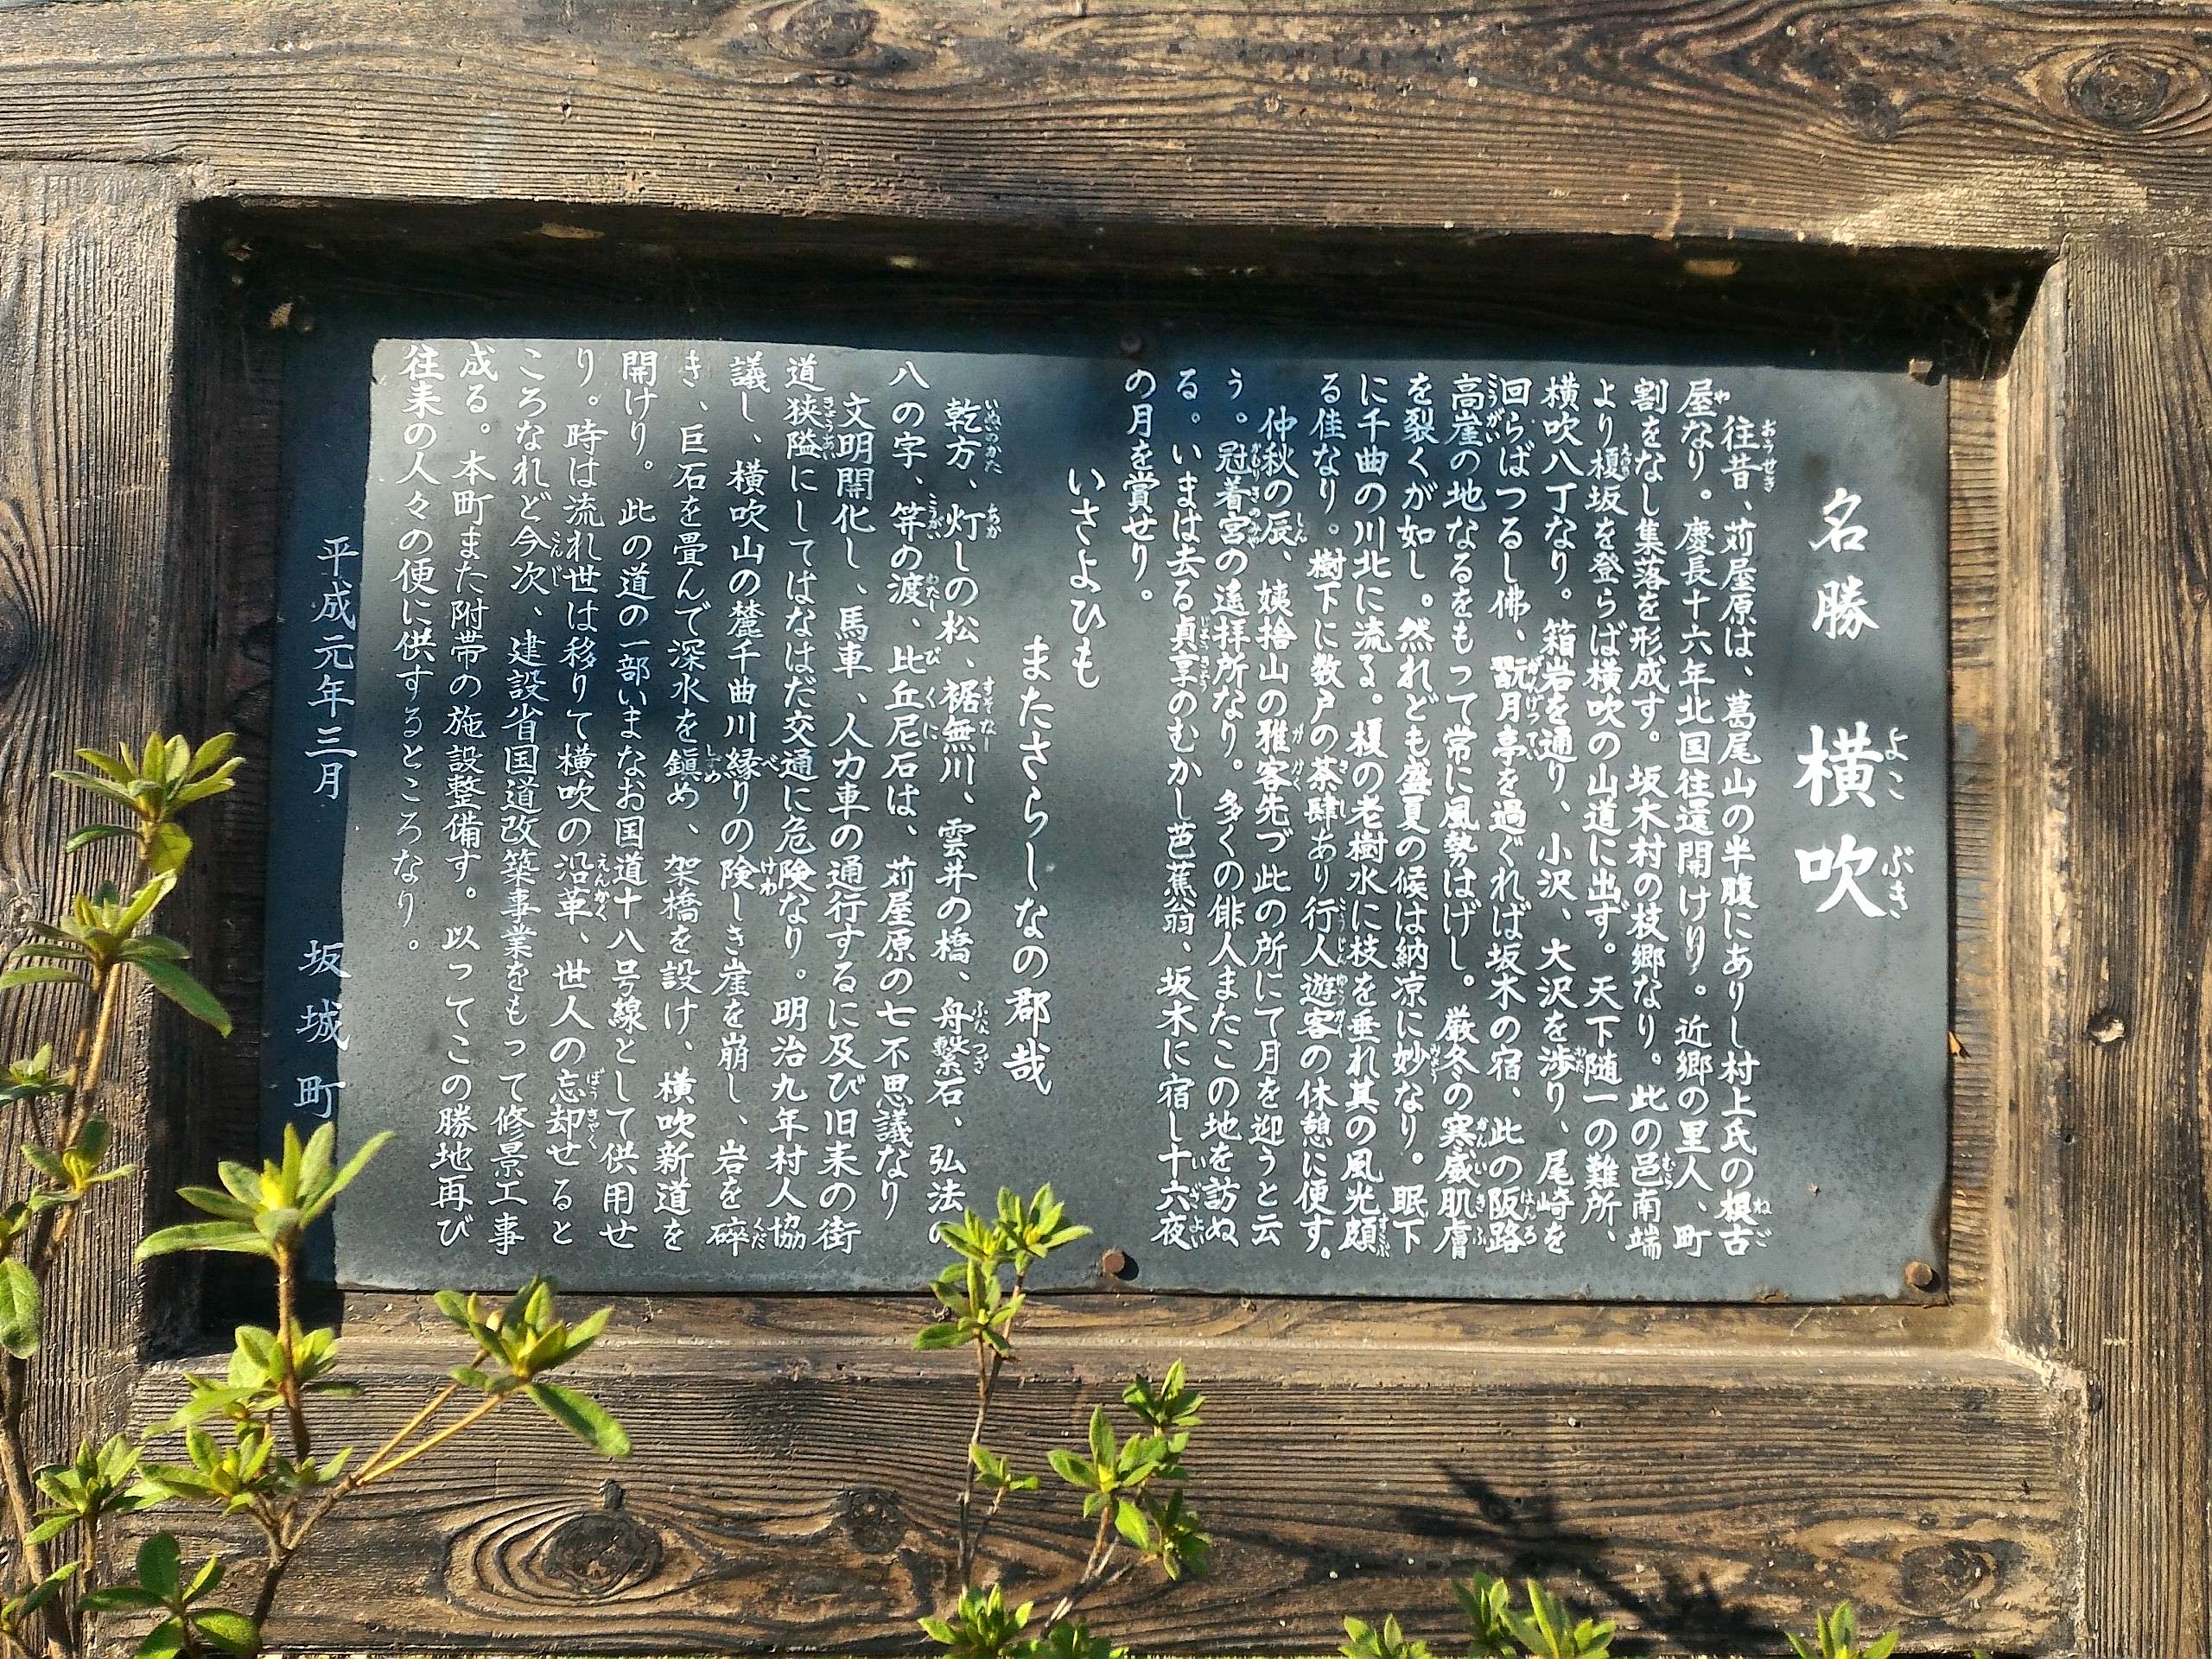 名勝 横吹
往昔、苅屋原は、葛尾山の半腹にありし村上氏の根古
屋なり。慶長十六年北国往還開けり。近郷の里人、町
割をなし集落を形成す。坂木村の枝郷なり。此の邑南端
より榎坂を登らば横吹の山道に出ず。天下随一の難所、
横吹八丁なり。箱岩を通り、小沢、大沢を渉り、尾崎を
回らばつるし佛、翫月亭を過ぐれば坂木の宿、此の阪路
高崖の地なるをもって常に風勢はげし。厳冬の寒威肌膚
を裂くが如し。然れども盛夏の候は納凉に妙なり。眠下
に千曲の川北に流る。榎の老樹水に枝を垂れ其の風光頗
る佳なり。樹下に数戸の茶肆あり行人遊客の休憩に便す。
仲秋の辰、姨捨山の雅客先づ此の所にて月を迎うと云
う。冠着宮の遙拝所なり。多くの俳人またこの地を訪ぬ
る。いまは去る貞享のむかし芭蕉翁、坂木に宿し十六夜
の月を賞せり。
いさよひも
またさらしなの郡哉
乾方、灯しの松、裾無川、雲井の橋、舟繋石、弘法の
八の字、笄の渡、比丘尼石は、苅屋原の七不思議なり
文明開化し、馬車、人力車の通行するに及び旧来の街
道狭隘にしてはなはだ交通に危険なり。明治九年村人協
議し、横吹山の麓千曲川縁りの険しき崖を崩し、岩を砕
き、巨石を畳んで深水を鎭め、架橋を設け、横吹新道を
開けり。此の道の一部いまなお国道十八号線として供用せ
り。時は流れ世は移りて横吹の沿革、世人の忘却せると
ころなれど今次、建設省国道改築事業をもって修景工事
成る。本町また附帯の施設整備す。以ってこの勝地再び
往来の人々の便に供するところなり。
平成元年三月 坂城町